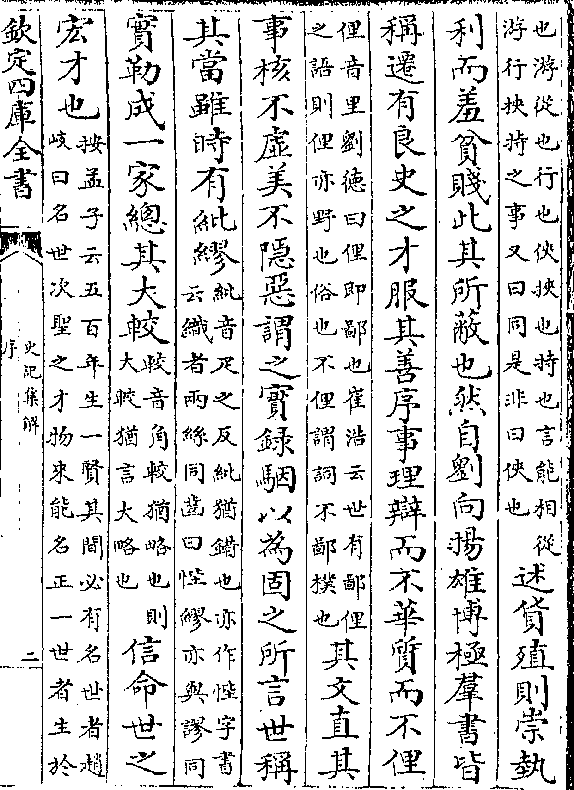 也游從也行也俠挾也持也言能相從
游行挾持之事又曰同是非曰俠也
述貨殖則崇埶
利而羞貧賤此其所蔽也然自劉向揚雄博極羣書皆
稱遷有良史之才服其善序事理辯而不華質而不俚
俚音里劉德曰俚即鄙也崔浩云世有鄙俚
之語則俚亦野也俗也不俚謂詞不鄙樸也
其文直其
事核不虛美不隱惡謂之實録駰以為固之所言世稱
其當雖時有紕繆
紕音疋之反紕猶錯也亦作悂字書
云織者兩絲同齒曰悂繆亦與謬同
實勒成一家總其大較
較音角較猶略也則
大較猶言大略也
信命世之
宏才也
按孟子云五百年生一賢其間必有名世者趙
岐曰名世次聖之才物來能名正一世者生於
欽定四庫全書
史記集解
序
二